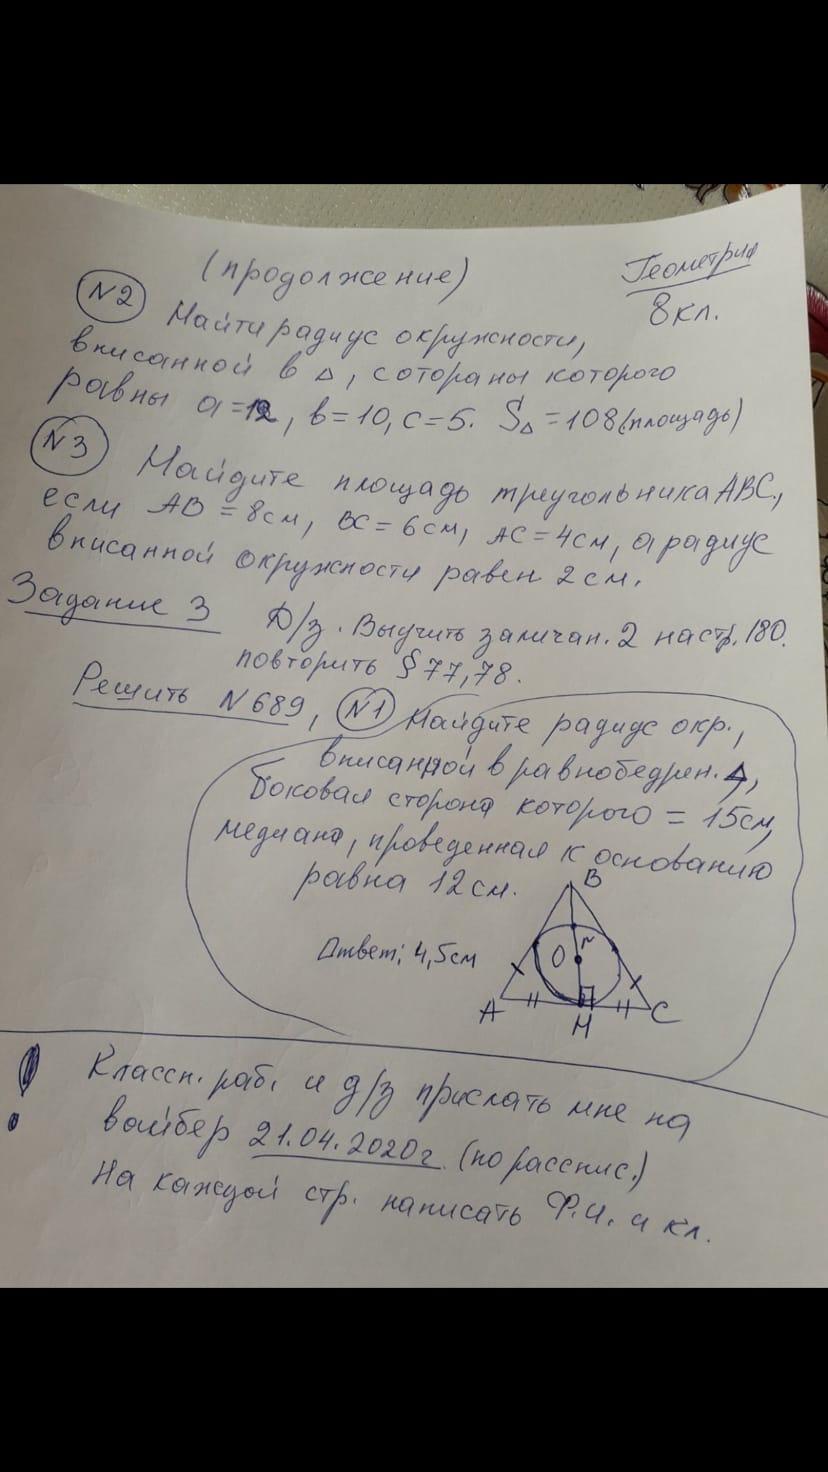 (продолжение)
Геометрия
8кл.
N2 Найти радиус окружности,
вписанной в Δ, стороны которого
равны a=12, b=10, c=5. SΔ=108(площадь)
N3 Найдите площадь треугольника ABC,
если AB=8см, BC=6см, AC=4см, а радиус
вписанной окружности равен 2см.
Задание 3 Д/з. Выучить замечан. 2 на стр. 180.
повторить §77,78.
Решить N689, N1 Найдите радиус окр.,
вписанной в равнобедрен. Δ,
боковая сторона которого = 15см,
медиана, проведенная к основанию
равна 12см.
B
Ответ: 4,5см
O r
A M C
! Классн. раб. и д/з прислать мне на
вайбер 21.04.2020г. (по распис.)
На каждой стр. написать Ф.И. и кл.